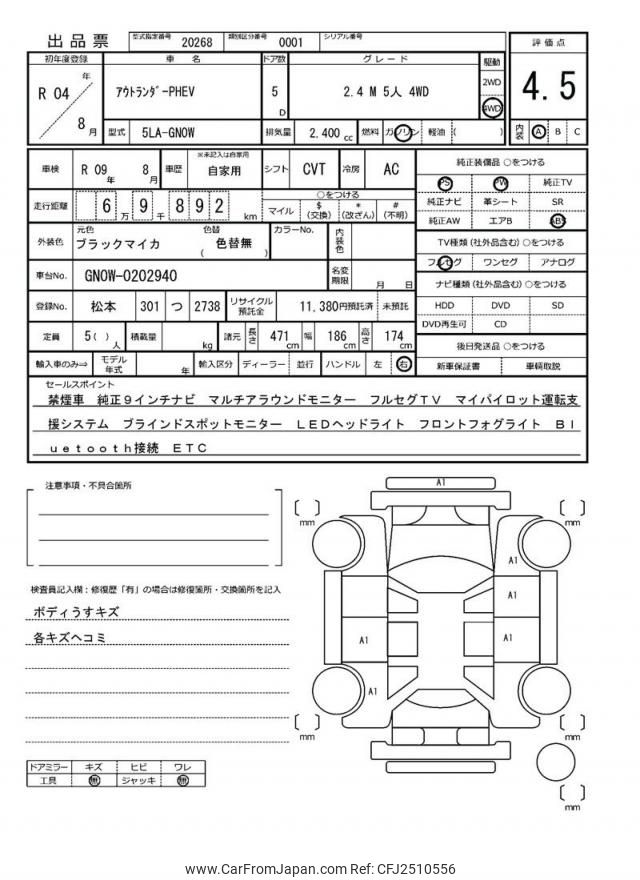 出品票 型式指定番号 20268 類別区分番号 0001 シリアル番号
初年度登録 車名 ドア数 グレード 駆動 評価点
R 04 年 8 月 アウトランダ゙ーPHEV 5 D 2.4 M 5人 4WD 2WD 4WD 4.5
型式 5LA-GN0W 排気量 2,400 cc 燃料 ガソリン 軽油 ( ) 内装 A B C
車検 R 09 年 8 月 車歴 ※未記入は自家用 自家用 シフト CVT 冷房 AC
走行距離 6 万 9 千 8 9 2 km ○をつける マイル $(交換) *(改ざん) #(不明)
外装色 元色 ブラックマイカ 色替 ( 色替無 ) カラーNo. 内装色
車台No. GN0W-0202940 名変期限 月 日
登録No. 松本 301 つ 2738 リサイクル預託金 11,380円預託済 未預託
定員 5( ) 人 積載量 kg 諸元 長さ 471 cm 幅 186 cm 高さ 174 cm
輸入車のみ⇒ モデル年式 年 輸入区分 ディーラー 並行 ハンドル 左 右
純正装備品 ○をつける
PS PW 純正TV
純正ナビ 革シート SR
純正AW エアB ABS
TV種類 (社外品含む) ○をつける
フルセグ ワンセグ アナログ
ナビ種類 (社外品含む) ○をつける
HDD DVD SD
DVD再生可 CD
後日発送品 ○をつける
新車保証書 車輌取説
セールスポイント
禁煙車 純正9インチナビ マルチアラウンドモニター フルセグTV マイパイロット運転支
援システム ブラインドスポットモニター LEDヘッドライト フロントフォグライト Bl
uetooth接続 ETC
注意事項・不具合箇所
検査員記入欄:修復歴「有」の場合は修復箇所・交換箇所を記入
ボディうすキズ
各キズヘコミ
ドアミラー キズ ヒビ ワレ
工具 無 ジャッキ 無
A1
[ ] mm [ ] mm
A1
A1
A1 A1
A1
[ ] mm [ ] mm
[ ] mm
www.CarFromJapan.com Ref: CFJ2510556